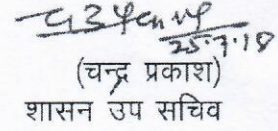 25.7.18
(चन्द्र प्रकाश)
शासन उप सचिव